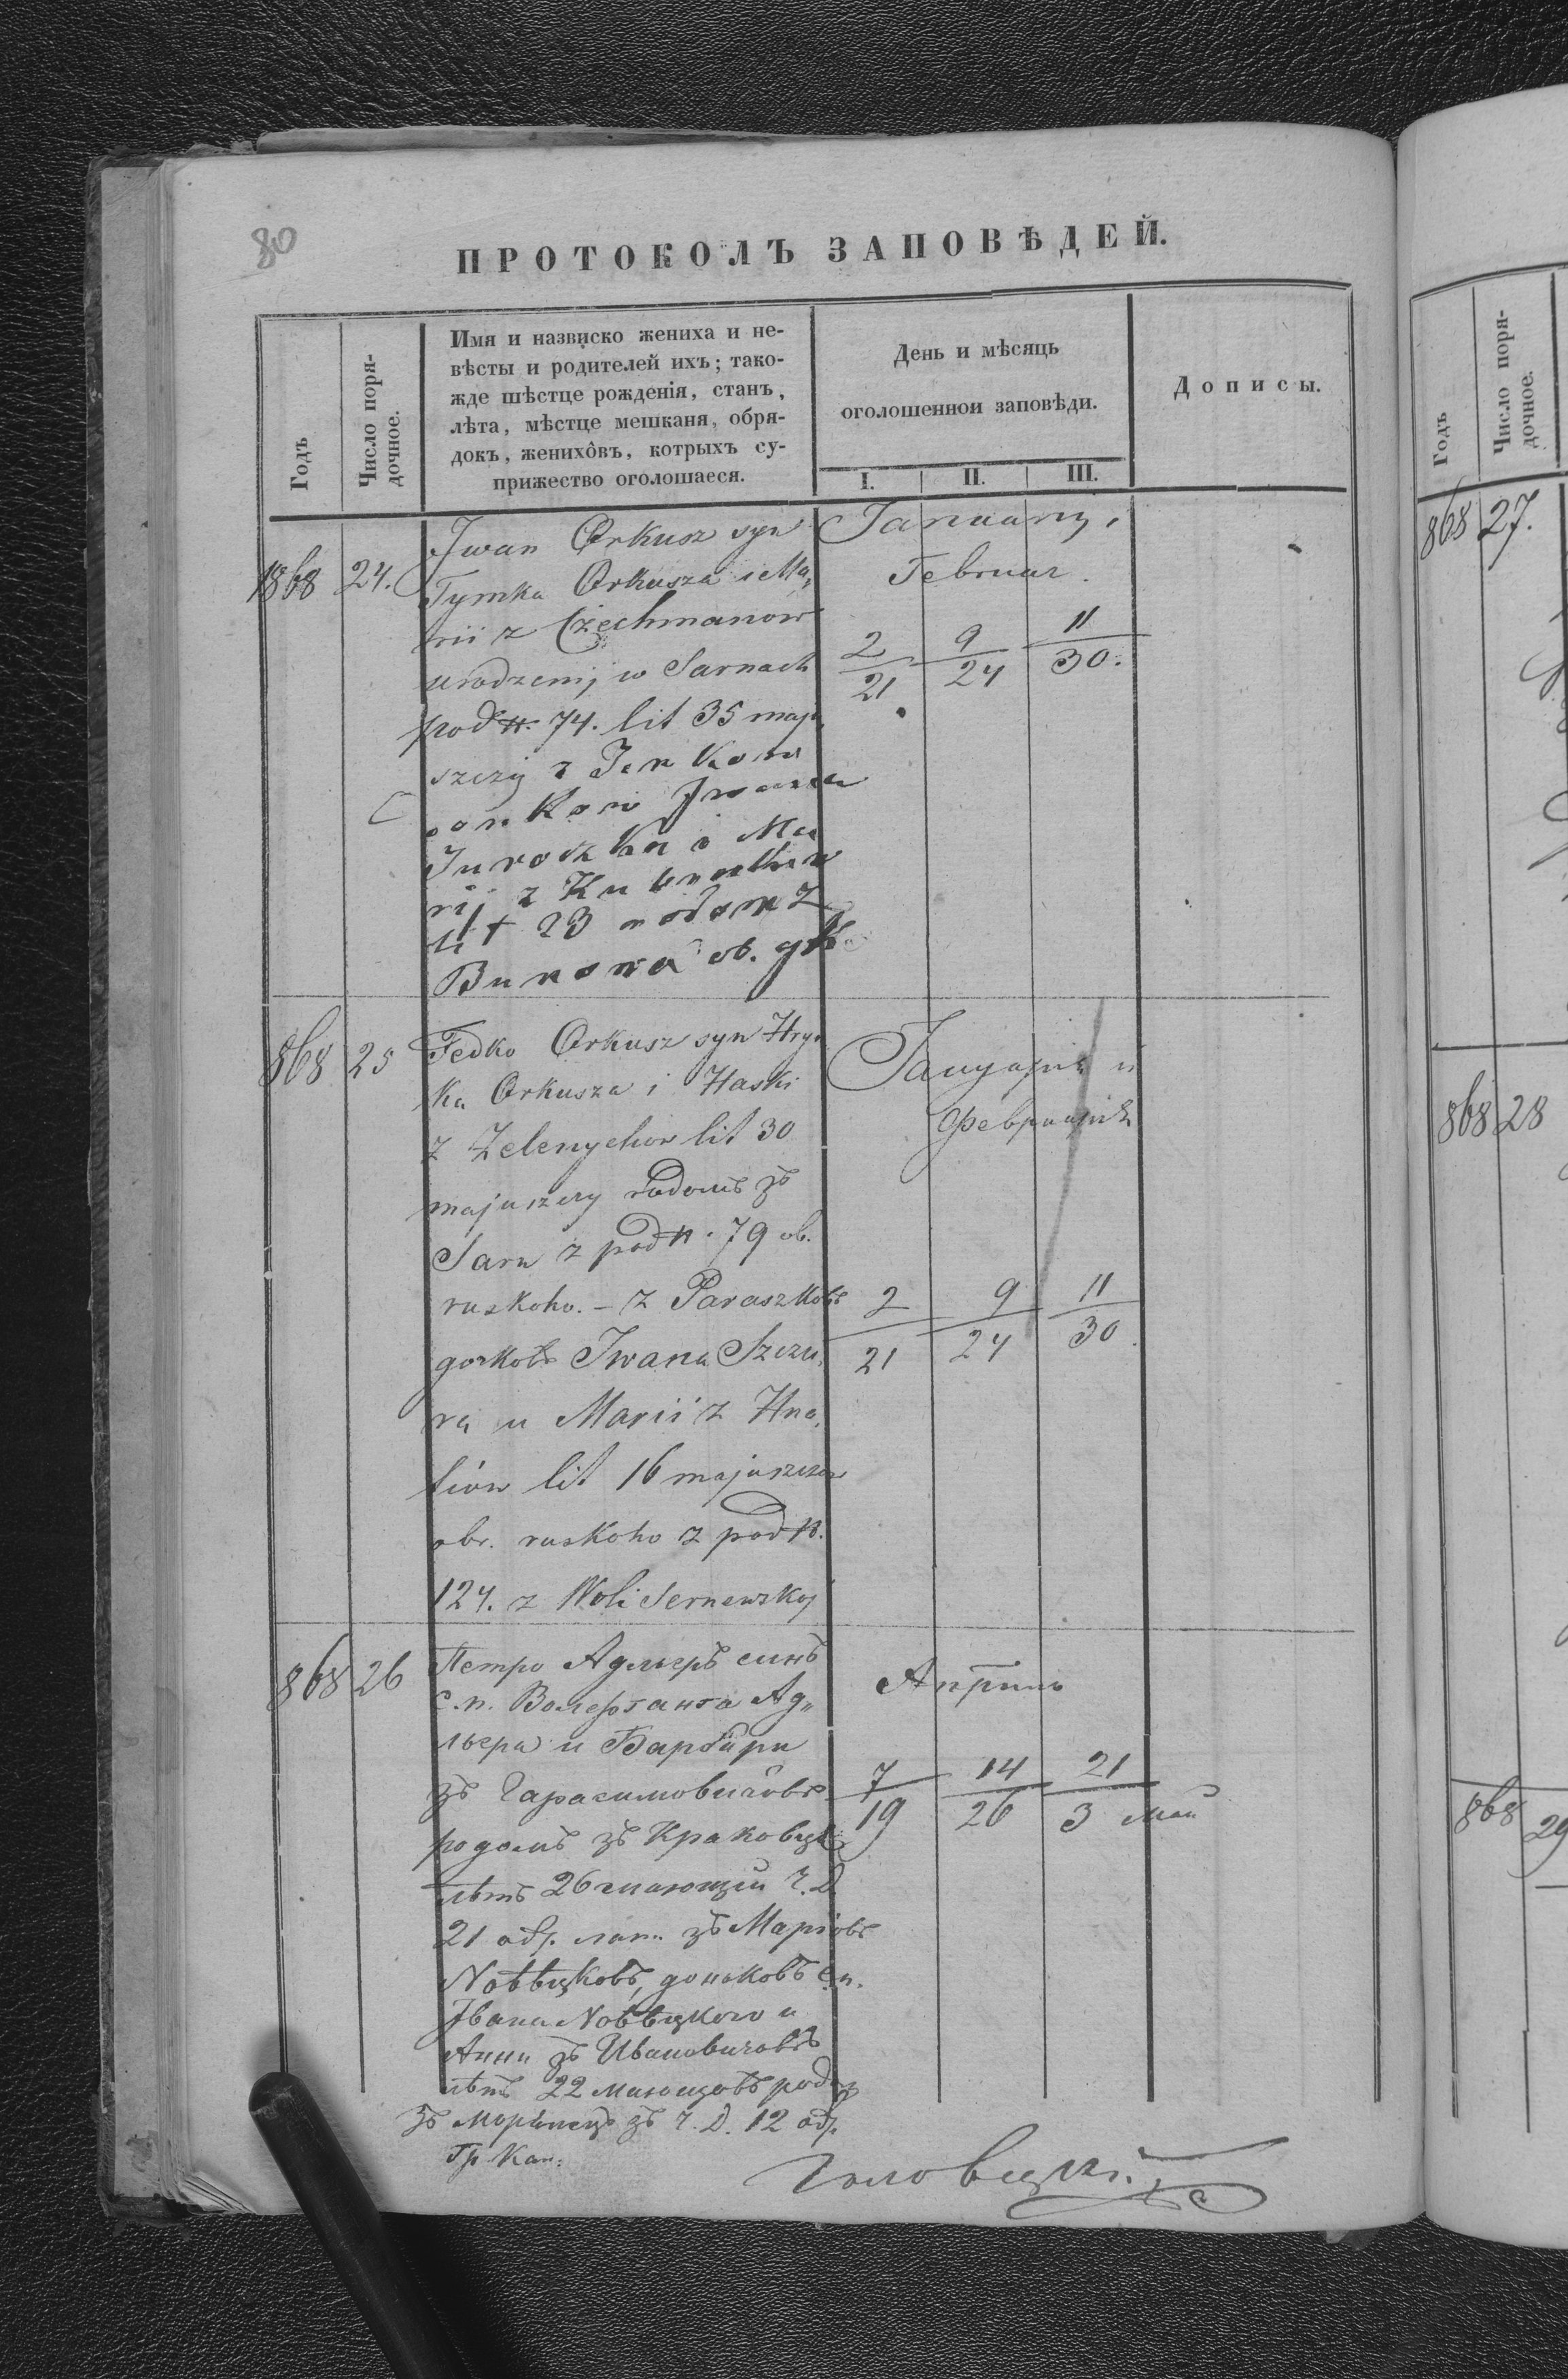 80
ПРОТОКОЛЪ ЗАПОВѢДЕЙ.
Годъ
Число поря-
дочное.
Имя и назвиско жениха и не-
вѣсты и родителей ихъ; тако-
жде шѣстце рожденія, станъ,
лѣта, мѣстце мешканя, обря-
докъ, женихôвъ, котрыхъ су-
прижество оголошаеся.
День и мѣсяць
оголошеннои заповѣди.
I. II. III.
Дописы.
1868 24.
Iwan Orkusz syn
Tymka Orkusza i Ma,
rii z Czechmanow
urodzenij w Sarnach
pod N. 74. lit 35 maju,
szczij z
Iwana
i Ma
rij z
lit 23 rodom z
Bunowa ob. gk
January,
Februar.
2 9 11
21 24 30.
868 25
Fedko Orkusz syn Hry,
ka Orkusza i Haski
z Zelenychow lit 30
majuszczy rodomъ зъ
Sarn z pod N. 79 ob.
ruskoho. – z Paraszkobъ
Iwana Szczu,
ra u Marii z Hna,
tiow lit 16 majuszczow
obr. ruskoho z pod N.
124. z Woli Sernewskoj
Януарія и
Февруарія
2 9 11
21 24 30.
868 26
Петро Адльеръ синъ
с.п. Волефганга Ад„
льера и Барбари
зъ Гарасимовичôвъ
родомъ зъ Краковця
лѣтъ 26 мающій Ч.Д.
21 обр. лат. зъ Маріовъ
доньковъ с.п.
Івана
Анни зъ Ивановичовъ
лѣтъ 22 маючовъ родом
зъ зъ Ч.Д. 12 обр.
Гр Кат:
Априль
7 14 21
19 26 3 Май
Головацкій
Годъ
Число поря-
дочное.
868 27.
868 28
868 29